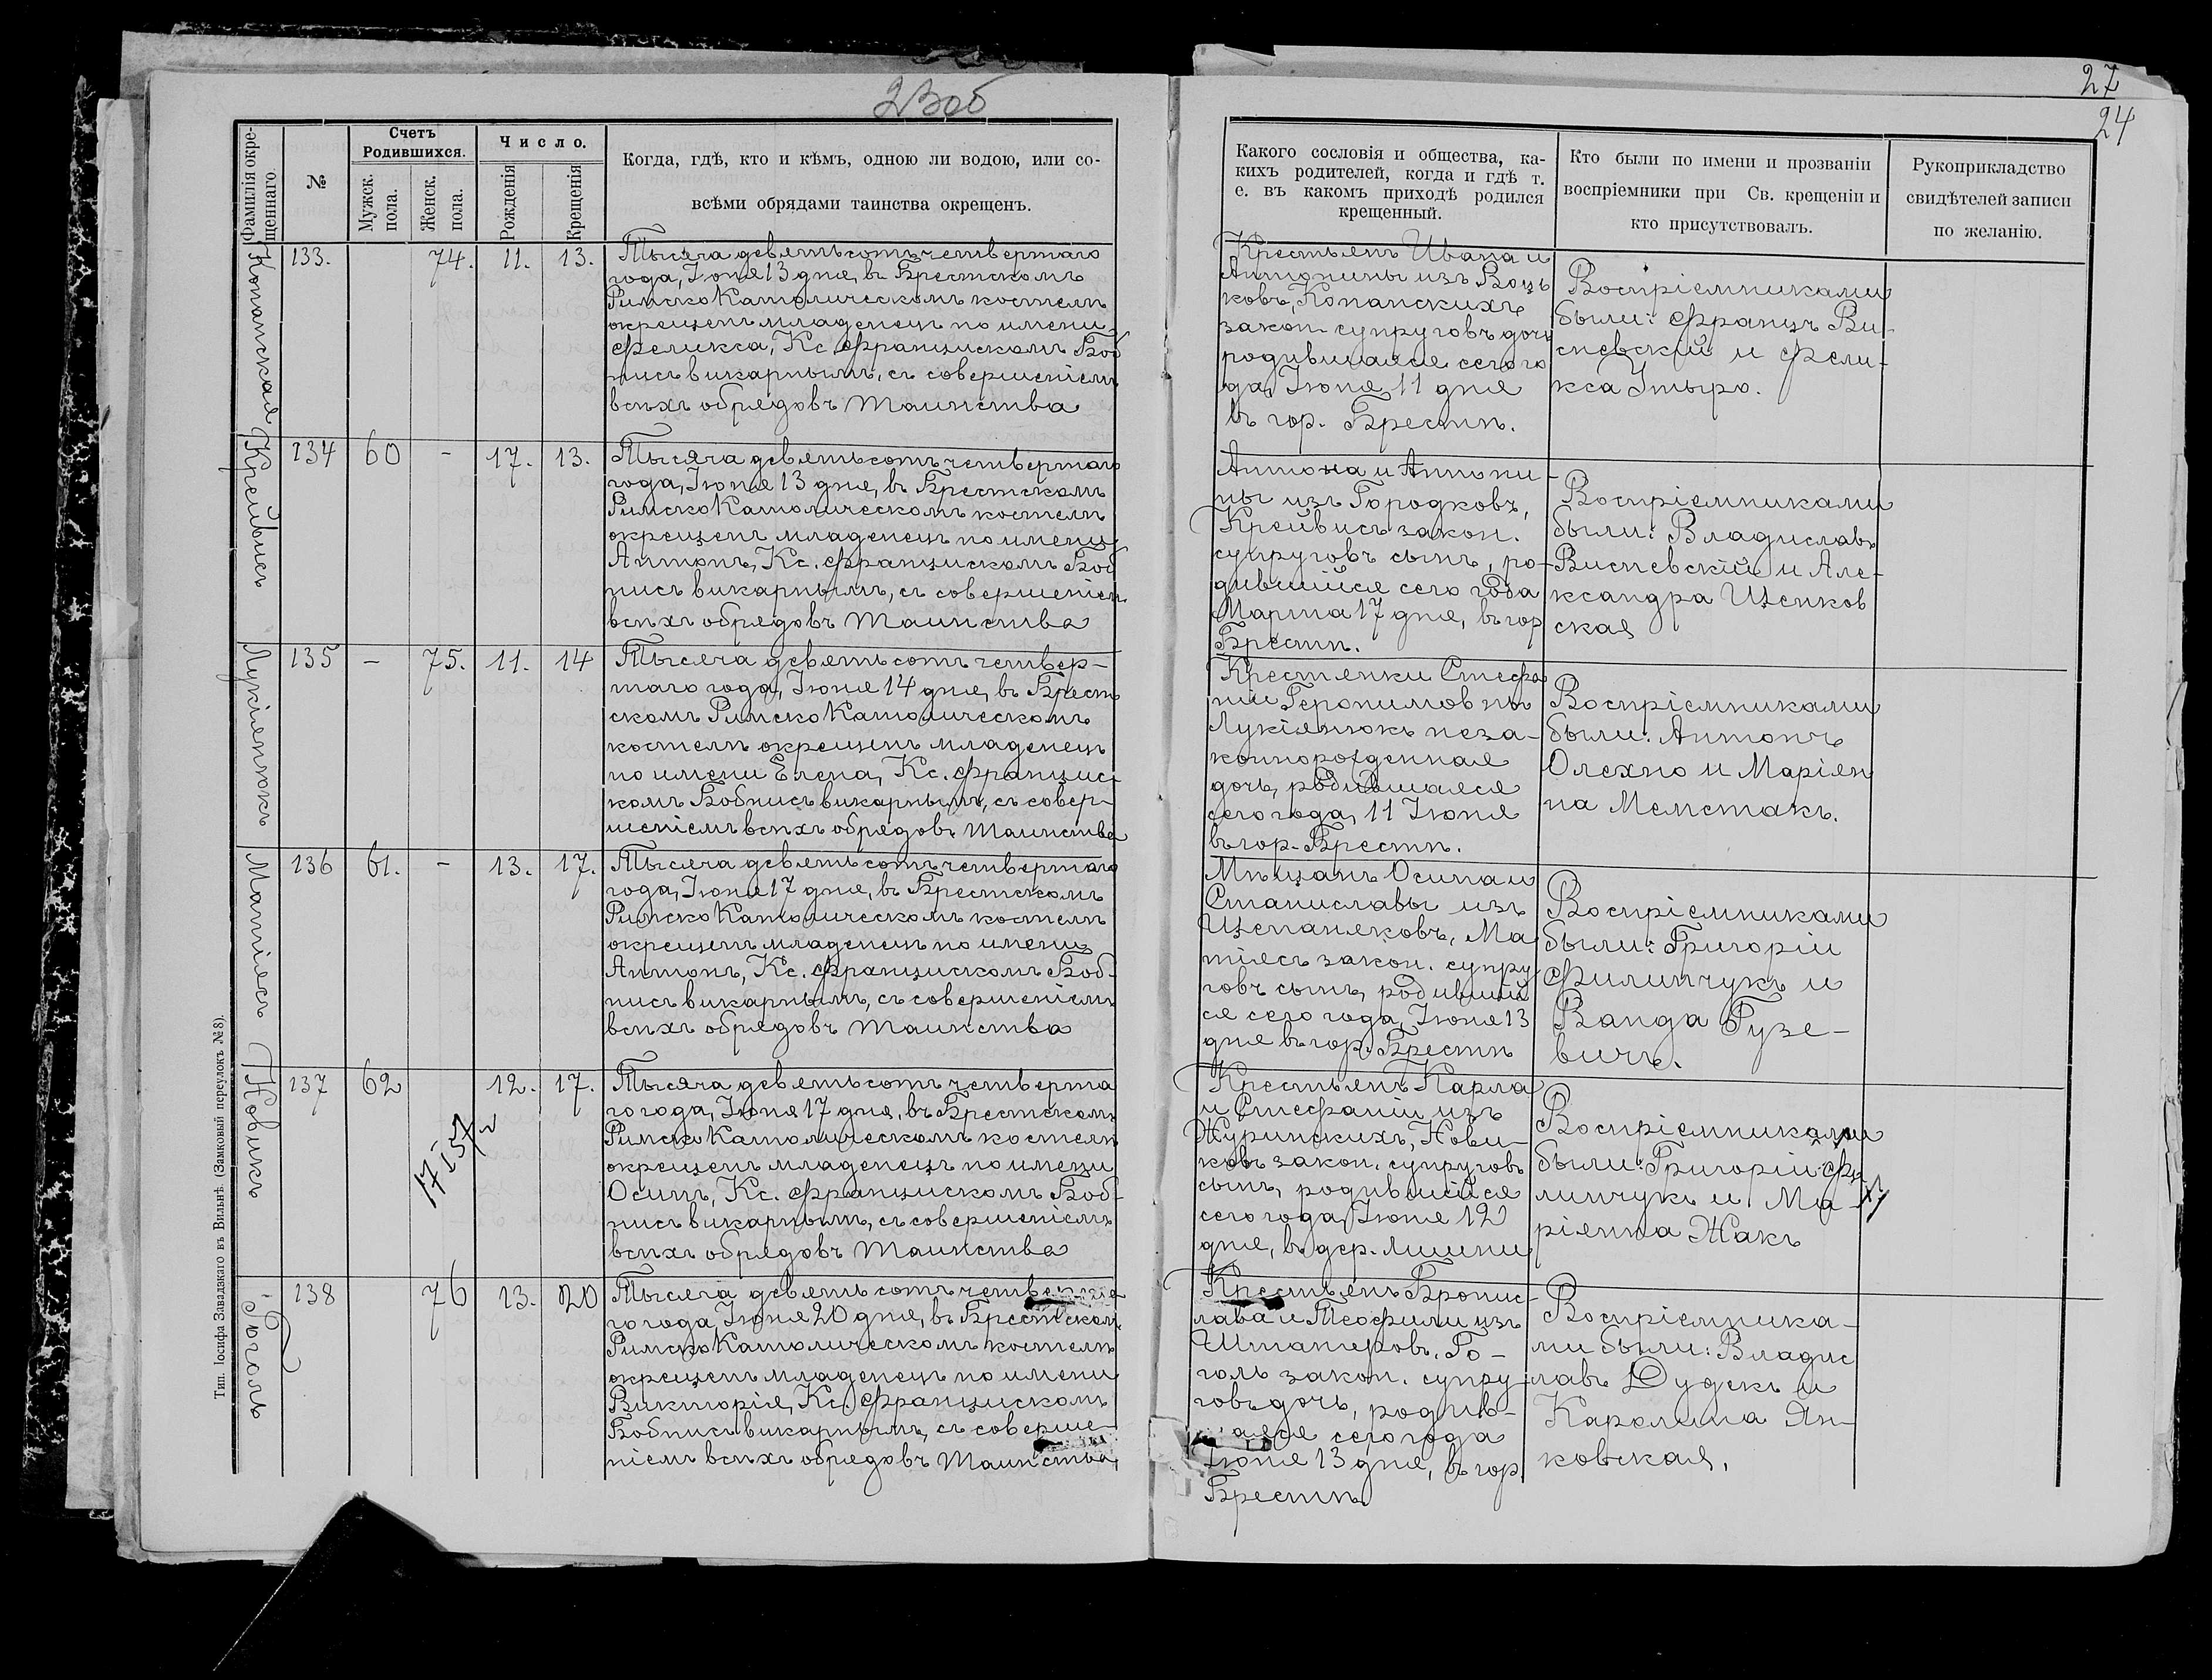 23об
27
24
Фамилія окре-
щеннаго.
№
Счетъ
Родившихся.
Мужск.
пола.
Женск.
пола.
Число.
Рожденія
Крещенія
Когда, гдѣ, кто и кѣмъ, одною ли водою, или со-
всѣми обрядами таинства окрещенъ.
Какого сословія и общества, ка-
кихъ родителей, когда и гдѣ т.
е. въ какомъ приходѣ родился
крещенный.
Кто были по имени и прозванію
воспріемники при Св. крещеніи и
кто присутствовалъ.
Рукоприкладство
свидѣтелей записи
по желанію.
Копанская
133.
74.
11.
13.
Тысяча девятьсотъ четвертаго
года, Іюня 13 дня, въ Брестскомъ
Римско Католическомъ костелѣ
окрещенъ младенецъ по имени
Феликса, Кс. Францискомъ Боб
нисъ викарнымъ, съ совершеніемъ
всѣхъ обрядовъ Таинства
Крестьянъ Ивана и
Антонины изъ
ковъ, Копанскихъ
закон. супруговъ дочь
родившаяся сего го
да, Іюня 11 дня
въ гор. Брестѣ.
Воспріемниками
были: Францъ Ви-
сневскій и Фели-
кса Утыро.
Крейвисъ
134
60
-
17.
13.
Тысяча девятьсотъ четвертаго
года, Іюня 13 дня, въ Брестскомъ
Римско Католическомъ костелѣ
окрещенъ младенецъ по имени
Антонъ, Кс. Францискомъ Боб
нисъ викарнымъ, съ совершеніем
всѣхъ обрядовъ Таинства
Антона и Антони-
ны изъ Городковъ,
Крейвисъ закон.
супруговъ сынъ, ро-
дившійся сего года
Марта 17 дня, въ гор
Брестѣ.
Воспріемниками
были: Владиславъ
Висневскій и Але-
ксандра Щенков
ская
Лукіянюкъ
135
-
75.
11.
14
Тысяча девятьсотъ четвер-
таго года, Іюня 14 дня, въ Брест
скомъ Римско Католическомъ
костелѣ окрещенъ младенец
по имени Елена, Кс. Францис-
комъ Бобнисъ викарнымъ, съ совер-
шеніемъ всѣхъ обрядовъ Таинства
Крестянки Стефа
ніи Геронимовны
Лукіянюкъ неза-
коннорожденная
дочь, родившаяся
сего года, 11 Іюня
въ гор. Брестѣ.
Воспріемниками
были: Антонъ
Олехно и Маріян
на Мемстакъ.
Матіясъ
136
61.
-
13.
17.
Тысяча девятьсотъ четвертаго
года, Іюня 17 дня, въ Брестскомъ
Римско Католическомъ костелѣ
окрещенъ младенецъ по имени
Антонъ, Кс. Францискомъ Боб-
нисъ викарнымъ, съ совершеніемъ
всѣхъ обрядовъ Таинства
Мѣщанъ Осипа и
Станиславы изъ
Щепаняковъ, Ма
тіясъ закон. супру
говъ сынъ, родивший
ся сего года, Іюня 13
дня въ гор. Брестѣ
Воспріемниками
были: Григорій
Филипчукъ и
Ванда Гузе-
вичъ.
Новикъ
137
62
12.
17.
Тысяча девятьсотъ четверта
го года, Іюня 17 дня, въ Брестскомъ
Римско Католическомъ костелѣ
окрещенъ младенецъ по имени
Осипъ, Кс. Францискомъ Боб-
нисъ викарнымъ, съ совершеніемъ
всѣхъ обрядовъ Таинства
Крестьянъ Карла
и Стефаніи изъ
Журинскихъ, Нови-
ковъ закон. супруговъ
сынъ, родившійся
сего года Іюня 12
дня, въ дер.
Воспріемниками
были: Григорій Фи
липчукъ и Ма-
ріянна Жакъ
Гоголь
138
76
13.
20
Тысяча девятьсотъ четверта
го года, Іюня 20 дня, въ Брестскомъ
Римско Католическомъ костелѣ
окрещенъ младенецъ по имени
Викторія, Кс. Францискомъ
Бобнисъ викарнымъ, съ соверше-
ніемъ всѣхъ обрядовъ Таинства,
Крестьянъ Бронис
лава и Теофили изъ
Штанеровъ, Го-
голь закон. супру
говъ дочь, родив-
аяся сего года
Іюня 13 дня, въ гор.
Брестѣ
Воспріемника-
ми были: Владис
лавъ Дудекъ и
Каролина Ян-
ковская.
Тип. Іосифа Завадзкаго въ Вильнѣ. (Замковый переулокъ № 8).